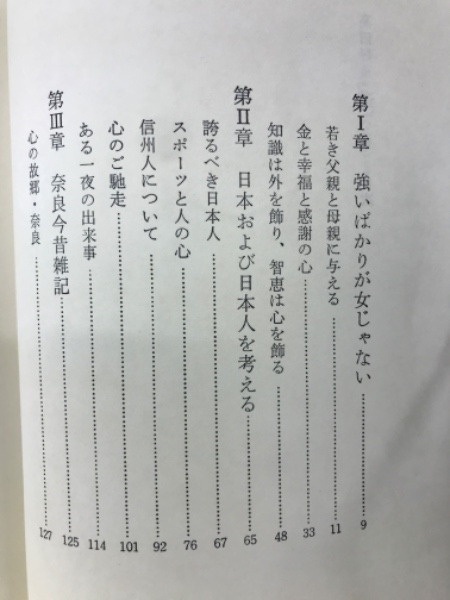 第Ⅰ章 強いばかりが女じゃない……9
若き父親と母親に与える……11
金と幸福と感謝の心……33
知識は外を飾り、智恵は心を飾る……48
第Ⅱ章 日本および日本人を考える……65
誇るべき日本人……67
スポーツと人の心……76
信州人について……92
心のご馳走……101
ある一夜の出来事……114
第Ⅲ章 奈良今昔雑記……125
心の故郷・奈良……127